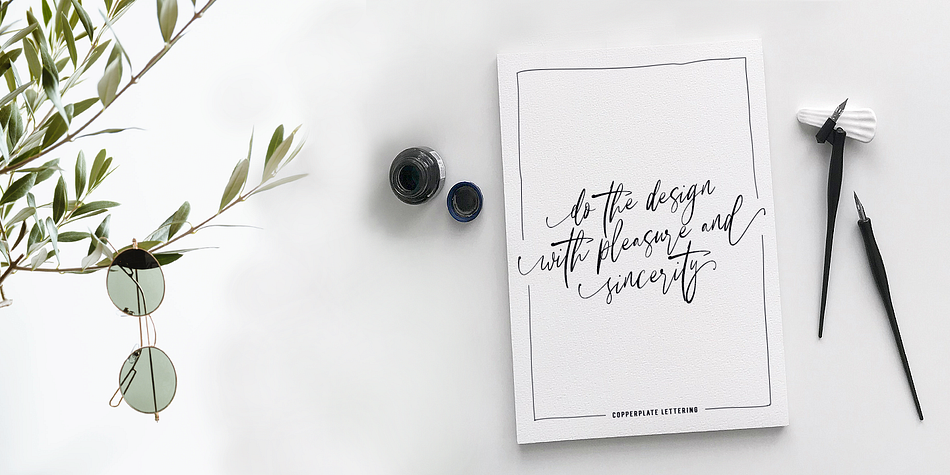 do the design
with pleasure and
sincerity
COPPERPLATE LETTERING